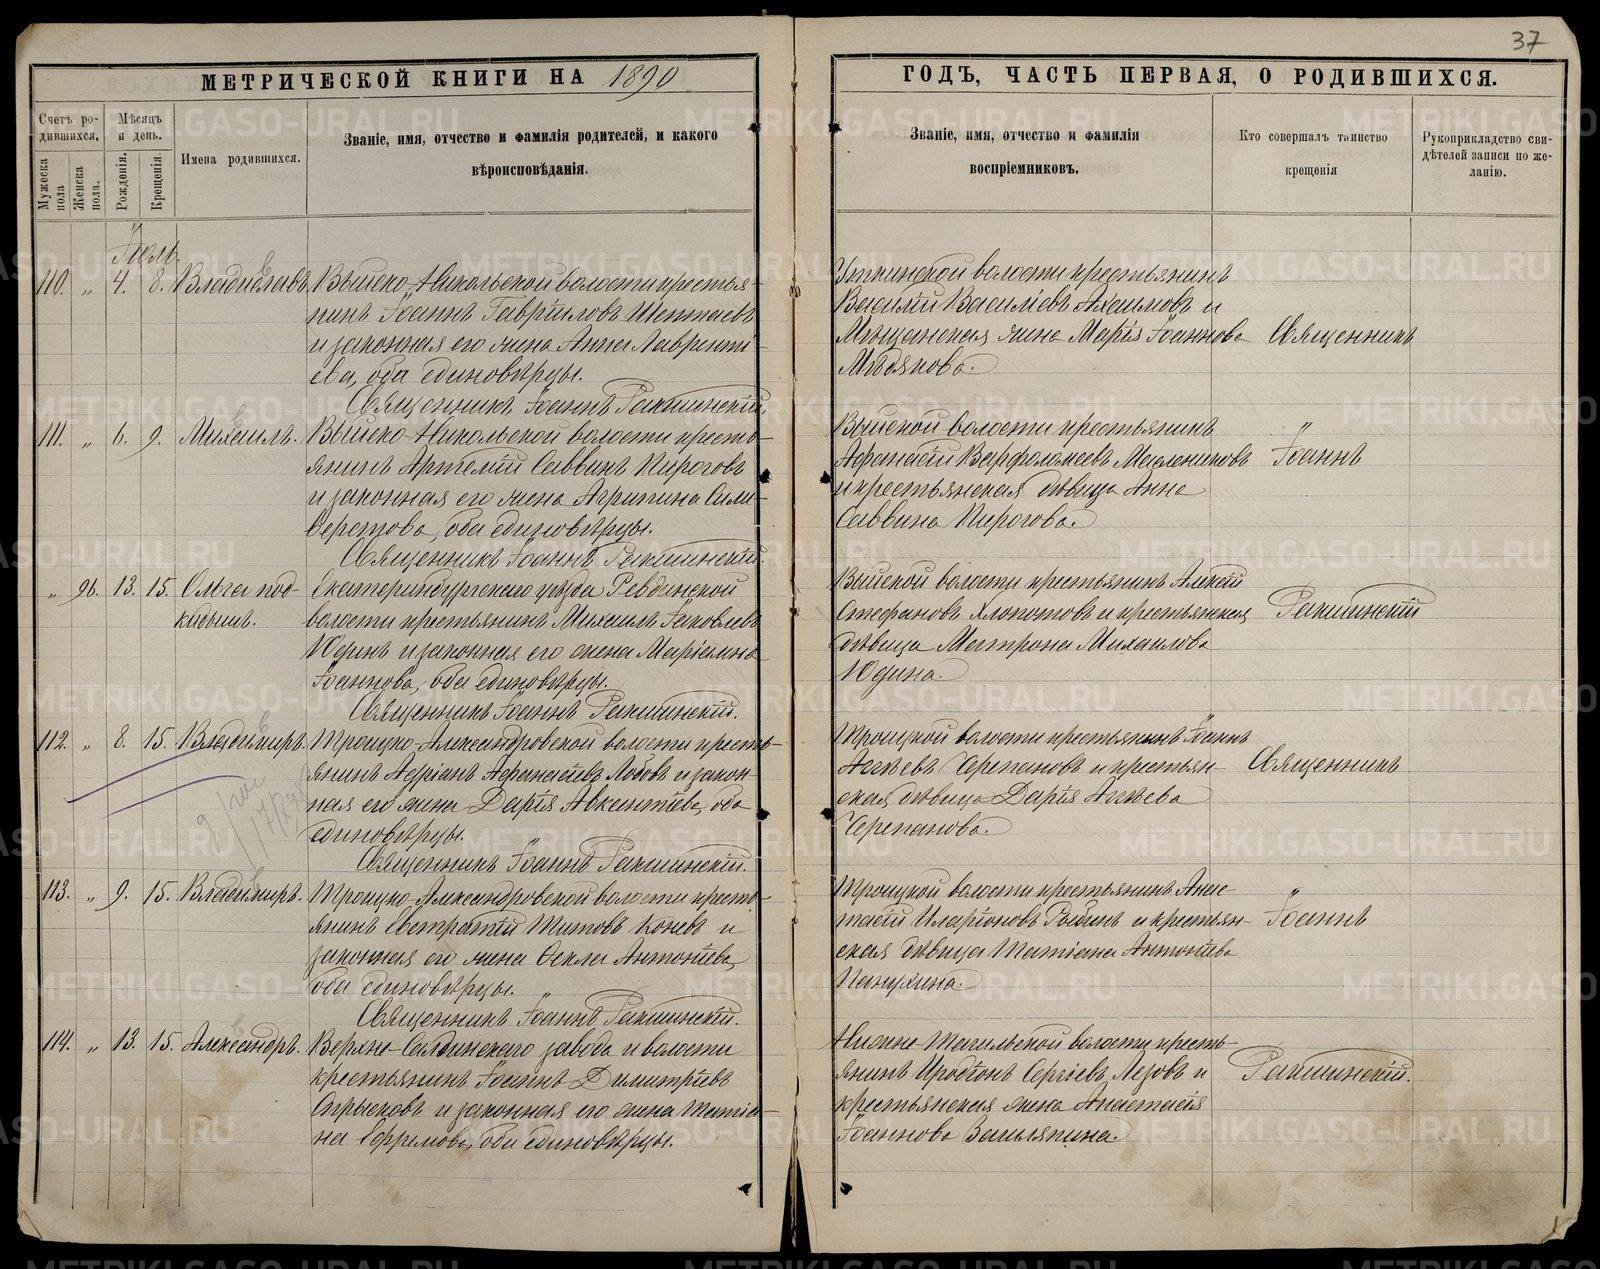 37
МЕТРИЧЕСКОЙ КНИГИ НА 1890
ГОДЪ, ЧАСТЬ ПЕРВАЯ, О РОДИВШИХСЯ.
Счетъ ро-
дившихся.
Мужеска
пола
Женска
пола.
Мѣсяцъ
и день.
Рожденія.
Крещенія.
Имена родившихся.
Званіе, имя, отчество и фамилія родителей, и какого
вѣроисповѣданія.
Званіе, имя, отчество и фамилія
воспріемниковъ.
Кто совершалъ таинство
крещенія
Рукоприкладство сви-
дѣтелей записи по же-
ланію.
Іюль.
110. „ 4. 8. Владиславъ
Выйско-Никольской волости крестья-
нинъ Іоаннъ Гавріиловъ
и законная его жена Анна Лавренті-
ева, оба единовѣрцы.
Священникъ Іоаннъ Ракшинскій.
Уткинской волости крестьянинъ
Василій Васильевъ и
Мѣщанская жена Марія Іоаннова
Мѣдякова.
Священникъ
111. „ 6. 9. Михаилъ.
Выйско-Никольской волости кресть-
янинъ Артемій Саввинъ Пироговъ
и законная его жена Агрипина Сили-
верстова, оба единовѣрцы.
Священникъ Іоаннъ Ракшинскій.
Выйской волости крестьянинъ
Афанасій Варфоломеевъ Масленниковъ
и крестьянская дѣвица Анна
Саввина Пирогова.
„
Іоаннъ
„ 96. 13. 15. Ольга под-
кидышъ.
Екатеринбургскаго уѣзда Ревдинской
волости крестьянинъ Михаилъ Іаковлевъ
Юдинъ и законная его жена Маріамна
Іоаннова, оба единовѣрцы.
Священникъ Іоаннъ Ракшинскій.
Выйской волости крестьянинъ Алексій
Стефановъ Хлопотовъ и крестьянская
дѣвица Матрона Михаилова
Юдина.
Ракшинскій
112. „ 8. 15. Владимиръ.
Троицко-Александровской волости кресть-
янинъ Адріанъ Афанасіевъ Лобовъ и закон-
ная его жена Дарія Авксентіева, оба
единовѣрцы.
Священникъ Іоаннъ Ракшинскій.
Троицкой волости крестьянинъ Іоаннъ
Аггѣевъ Черепановъ и крестьян-
ская дѣвица Дарія Аггѣева
Черепанова.
Священникъ
113. „ 9. 15. Владимиръ.
Троицко-Александровской волости кресть-
янинъ Евстратій Титовъ Коневъ и
законная его жена Фекла Антоніева,
оба единовѣрцы.
Священникъ Іоаннъ Ракшинскій.
Троицкой волости крестьянинъ Анас-
тасій Иларіоновъ и крестьян-
ская дѣвица Татіана Антоніева
„
Іоаннъ
114. „ 13. 15. Александръ.
Верхне-Салдинскаго завода и волости
крестьянинъ Іоаннъ Димитріевъ
и законная его жена Татіа-
на Ефремова, оба единовѣрцы.
Нижне-Тагильской волости кресть-
янинъ Иродіонъ Сергіевъ и
крестьянская жена Анастасія
Іоаннова
Ракшинскій.
METRIKI.GASO-URAL.RU